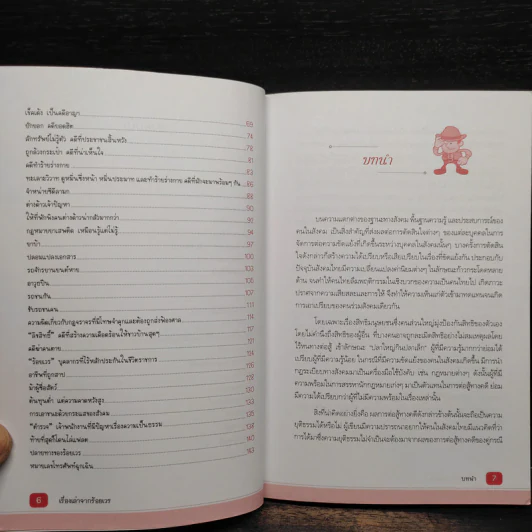 เช็คเด้ง เป็นคดีอาญา 69
ยักยอก คดียอดฮิต 74
ลักทรัพย์ไม่รู้ตัว คดีที่ประชาชนสิ้นหวัง 78
ถูกล้วงกระเป๋า คดีที่น่าเห็นใจ 81
คดีทำร้ายร่างกาย 83
ทะเลาะวิวาท ดูหมิ่นซึ่งหน้า หมิ่นประมาท และทำร้ายร่างกาย คดีที่มักจะมาพร้อมๆ กัน 86
จำหน่ายซีดีลามก 88
ต่างด้าวเจ้าปัญหา 90
ให้ที่พักพิงคนต่างด้าวน่ากลัวมากกว่า 92
กฎหมายยาเสพติด เหมือนรู้แต่ไม่รู้ 94
ยาบ้า 97
ปลอมแปลงเอกสาร 100
รถจักรยานยนต์หาย 103
อาวุธปืน 105
รถชนกัน 107
ขับรถชนคน 111
ความผิดเกี่ยวกับกฎจราจรที่มีโทษจำคุกและต้องถูกส่งฟ้องศาล 114
"ลิขสิทธิ์" คดีที่สร้างความเดือดร้อนให้ชาวบ้านสุดๆ 117
คดีฆ่าคนตาย 121
"ร้อยเวร" บุคลากรที่ไร้หลักประกันในชีวิตราชการ 124
อาชีพที่ถูกสาป
ม้าผู้ซื่อสัตว์
ต้นทุนต่ำ แต่ความคาดหวังสูง
การเอาชนะด้วยกระแสของสังคม 135
"ตำรวจ" เจ้าพนักงานที่มีปัญหาเรื่องความเป็นธรรม 138
ท้ายที่สุดก็โดนไล่แฟลต 140
ปลายทางของร้อยเวร 143
หมายเลขโทรศัพท์ฉุกเฉิน
6 เรื่องเล่าจากร้อยเวร
บทนำ
บนความแตกต่างของฐานะทางสังคม พื้นฐานความรู้ และประสบการณ์ของ
คนในสังคม เป็นสิ่งสำคัญที่ส่งผลต่อการตัดสินใจต่างๆ ของแต่ละบุคคลในการ
จัดการต่อความขัดแย้งที่เกิดขึ้นระหว่างบุคคลในสังคมนั้นๆ บางครั้งการตัดสิน
ใจดังกล่าวก็สร้างความได้เปรียบหรือเสียเปรียบในเรื่องที่ขัดแย้งกัน ประกอบกับ
ปัจจุบันสังคมไทยมีความเปลี่ยนแปลงค่านิยมต่างๆ ในลักษณะก้าวกระโดดหลาย
ด้าน จนทำให้คนไทยลืมพฤติกรรมในเชิงบวกของความเป็นคนไทยไป เกิดภาวะ
ปราศจากความเสียสละและการให้ จึงทำให้ความเห็นแก่ตัวเข้ามาทดแทนจนเกิด
การเอาเปรียบของคนร่วมสังคมเดียวกัน
โดยเฉพาะเรื่องสิทธิมนุษยชนซึ่งคนส่วนใหญ่มุ่งป้องกันสิทธิของตัวเอง
โดยไม่คำนึงถึงสิทธิของผู้อื่น ที่บางคนอาจถูกละเมิดสิทธิอย่างไม่สมเหตุผลโดย
ไร้หนทางต่อสู้ เข้าลักษณะ "ปลาใหญ่กินปลาเล็ก" ผู้ที่มีความรู้มากกว่าย่อมได้
เปรียบผู้ที่มีความรู้น้อย ในกรณีที่มีความขัดแย้งของคนในสังคมเกิดขึ้น มีการนำ
กฎระเบียบทางสังคมมาเป็นเครื่องมือใช้บังคับ เช่น กฎหมายต่างๆ ดังนั้นผู้ที่มี
ความพร้อมในการสรรหานักกฎหมายเก่งๆ มาเป็นตัวแทนในการต่อสู้ทางคดี ย่อม
มีความได้เปรียบกว่าผู้ที่ไม่มีความพร้อมในเรื่องเหล่านั้น
สิ่งที่น่าคิดอย่างยิ่งคือ ผลการต่อสู้ทางคดีดังกล่าวข้างต้นนั้นจะถือเป็นความ
ยุติธรรมได้หรือไม่ ผู้เขียนมีความปรารถนาอยากให้คนในสังคมไทยมีแนวคิดที่ว่า
การได้มาซึ่งความยุติธรรมไม่จำเป็นจะต้องมาจากผลของการต่อสู้ทางคดีของคู่กรณี
บทนำ 7